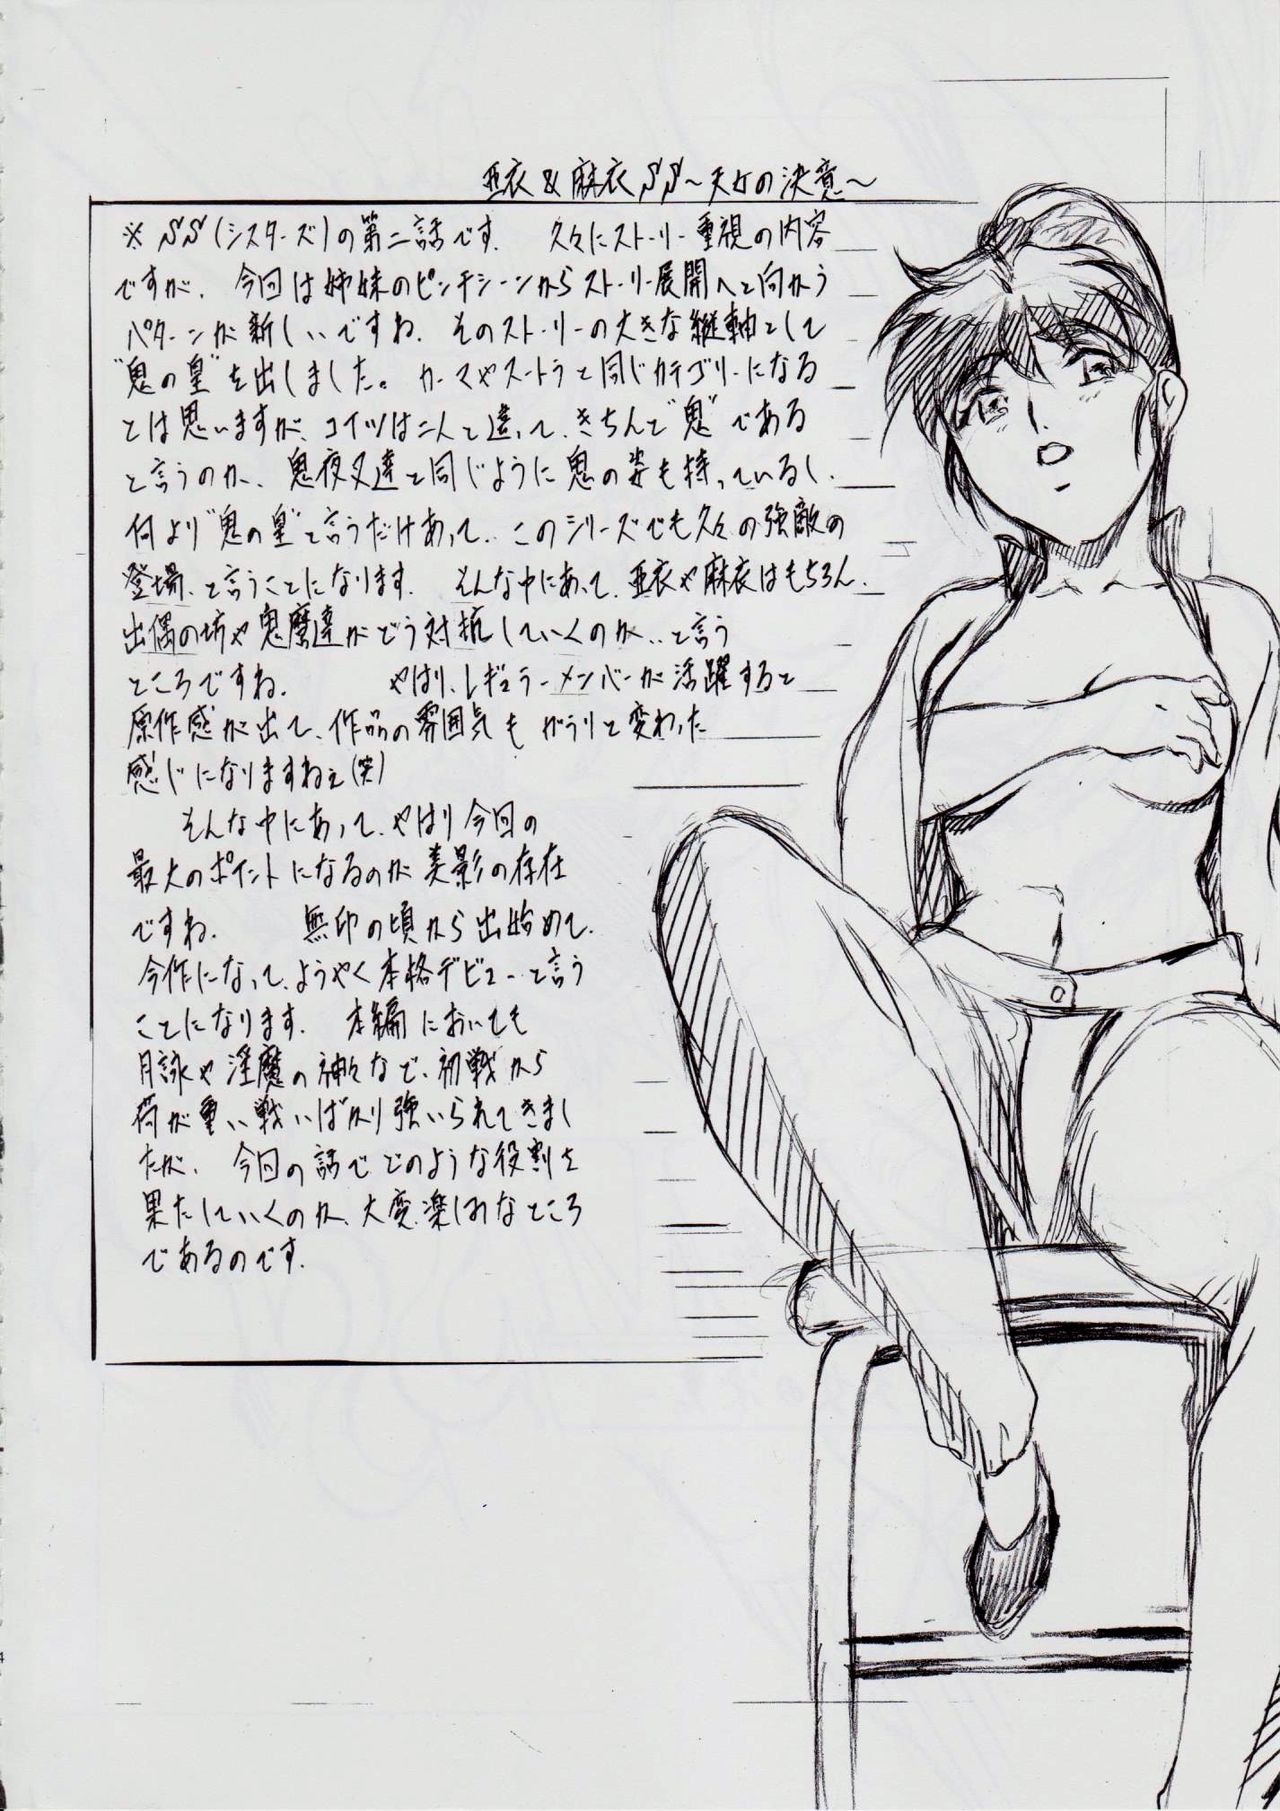 亜衣&麻衣SS～天女の決意～
※SS(シスターズ)の第二話です. 久々にストーリー重視の内容
ですが、今回は姉妹のピンチシーンからストーリー展開へと向かう
パターンが新しいですね. そのストーリーの大きな縦軸として
"鬼の皇"を出しました。カーマやスートラと同じカテゴリーになる
とは思いますが、コイツは二人と違って、きちんと"鬼"である
と言うのか、鬼夜叉達と同じように鬼の姿も持っているし、
何より"鬼の皇"と言うだけあって‥このシリーズでも久々の強敵の
登場、と言うことになります. そんな中にあって、亜衣や麻衣はもちろん、
出偶の坊や鬼麿達がどう対抗していくのか‥と言う
ところですね. やはり、レギュラーメンバーが活躍すると
原作感が出て、作品の雰囲気もがらりと変わった
感じになりますねぇ(笑)
そんな中にあって、やはり今回の
最大のポイントになるのが美影の存在
ですね. 無印の頃から出始めて、
今作になって、ようやく本格デビュー‥と言う
ことになります. 本編においても
月詠や淫魔の神々など、初戦から
荷が重い戦いばかり強いられてきまし
たが、今回の話でどのような役割を
果たしていくのか、大変楽しみなところ
であるのです.